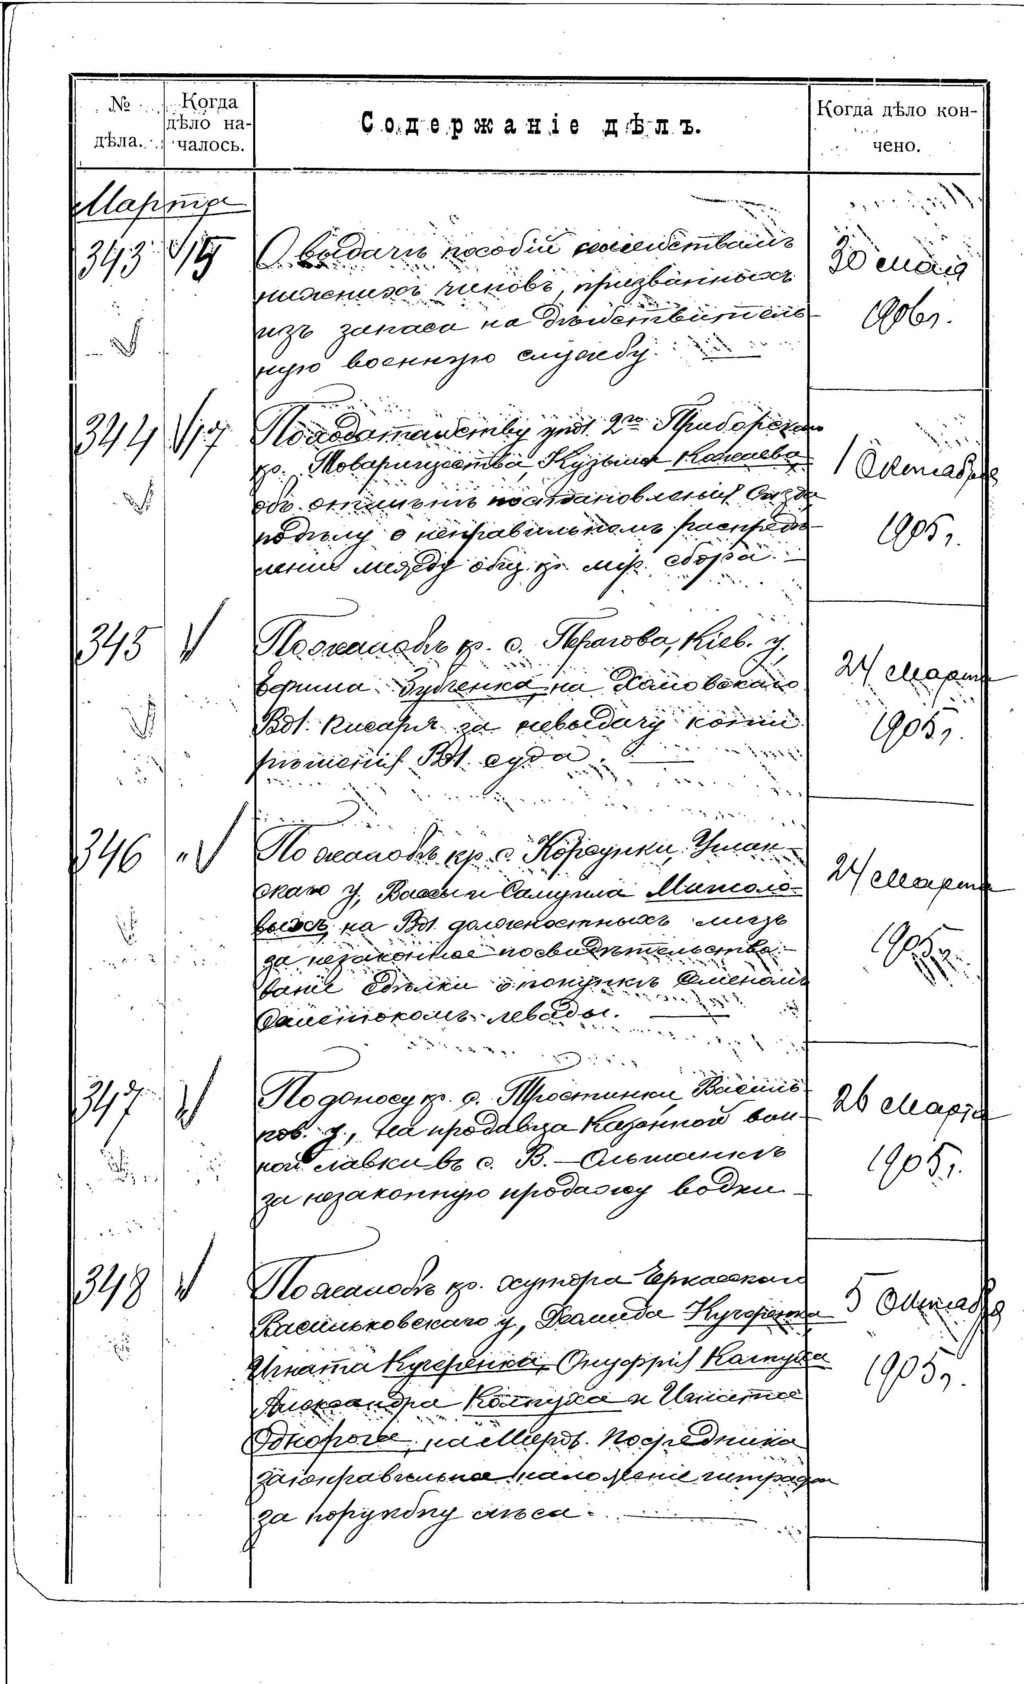 № дѣла.
Когда дѣло началось.
Содержаніе дѣлъ.
Когда дѣло кончено.
Марта
343 15
О выдачѣ пособій семействамъ
нижнихъ чиновъ, призванныхъ
изъ запаса на дѣйствитель-
ную военную службу.
30 мая
1906 г.
344 17
По ходатайству упол. 2го
кр. Товарищества, Кузьмы
объ отмѣнѣ постановленія Съѣзда
по дѣлу о неправильномъ распредѣ-
леніи между общ. кр. мір. сбора.
1 Октября
1905 г.
345
По жалобѣ кр. с. Пирогова, Кіев. у,
Ефима Зубченка, на Хотовскаго
Вол. писаря за невыдачу копіи
рѣшенія Вол. суда
24 Марта
1905 г.
346 "
По жалобѣ кр. с. Корсунки, Уман-
скаго у, и Самуила
на Вол. должностныхъ лицъ
за незаконное посвидѣтельство-
ваніе сдѣлки о покупкѣ Семеномъ
левады.
24 Марта
1905 г.
347
По доносу кр. с. Тростинки, Василь-
ков. у., на продавца казенной вин-
ной лавки въ с. В.-Ольшанкѣ
за незаконную продажу водки
26 Марта
1905 г.
348
По жалобѣ кр. хутора Черкасскаго
Васильковскаго у, Кучеренка
Игната Кучеренка, Онуфрія
Александра и Игната
Однорога, на Миров. посредника
за неправильное наложеніе штрафа
за порубку лѣса.
5 Октября
1905 г.